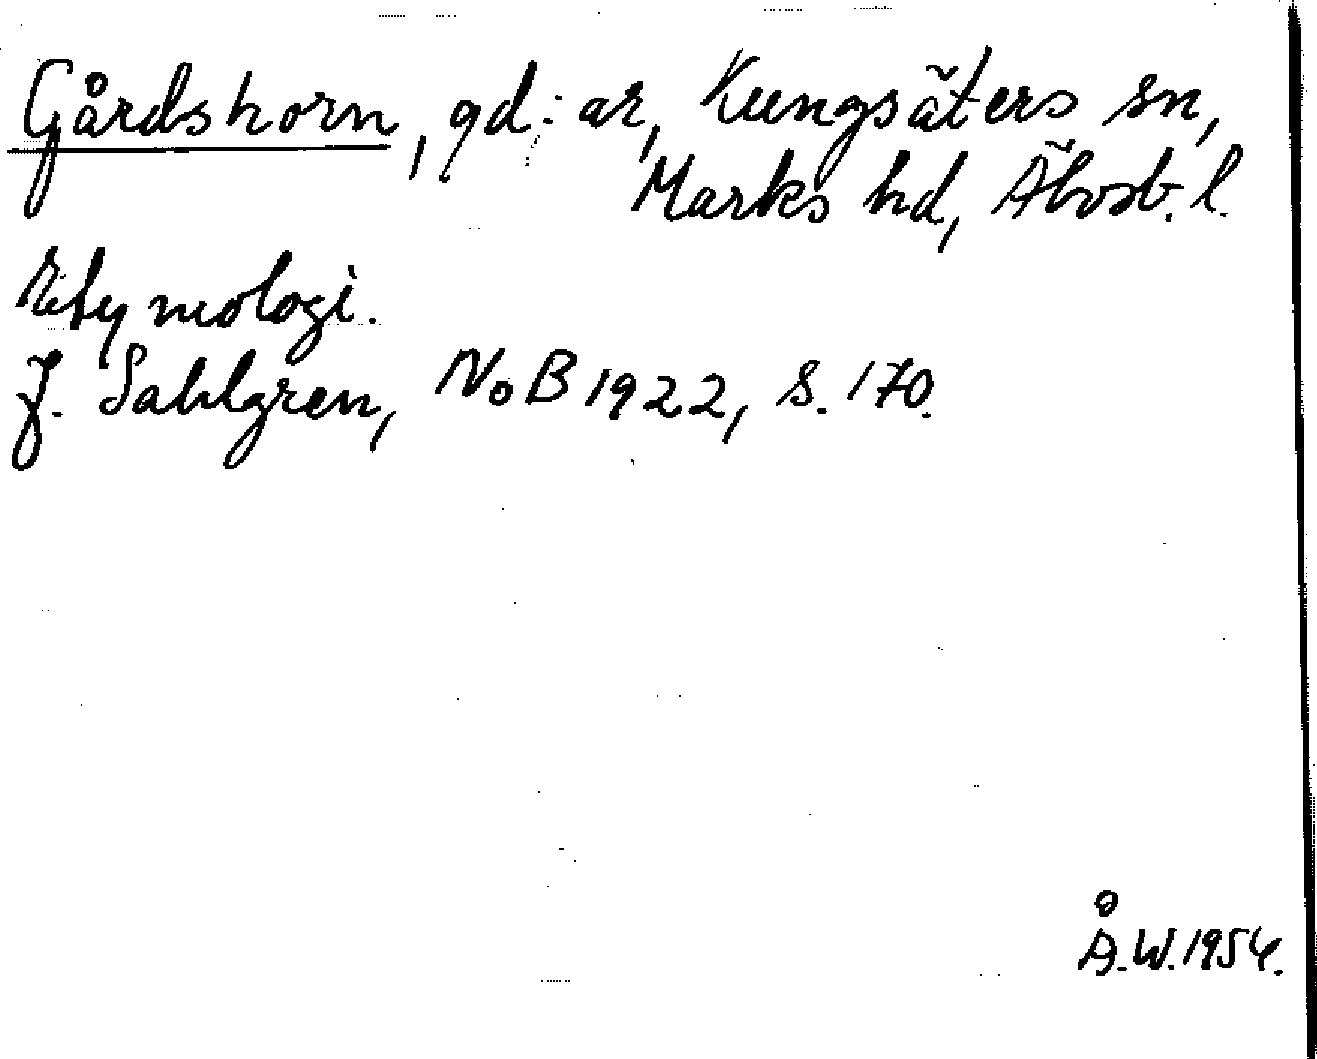 Gårdshorn, gd:ar, Kungsäters sn,
Marks hd, Älvsb. l.
Etymologi.
J. Sahlgren, NoB 1922, s. 170.
Å.W. 1954.